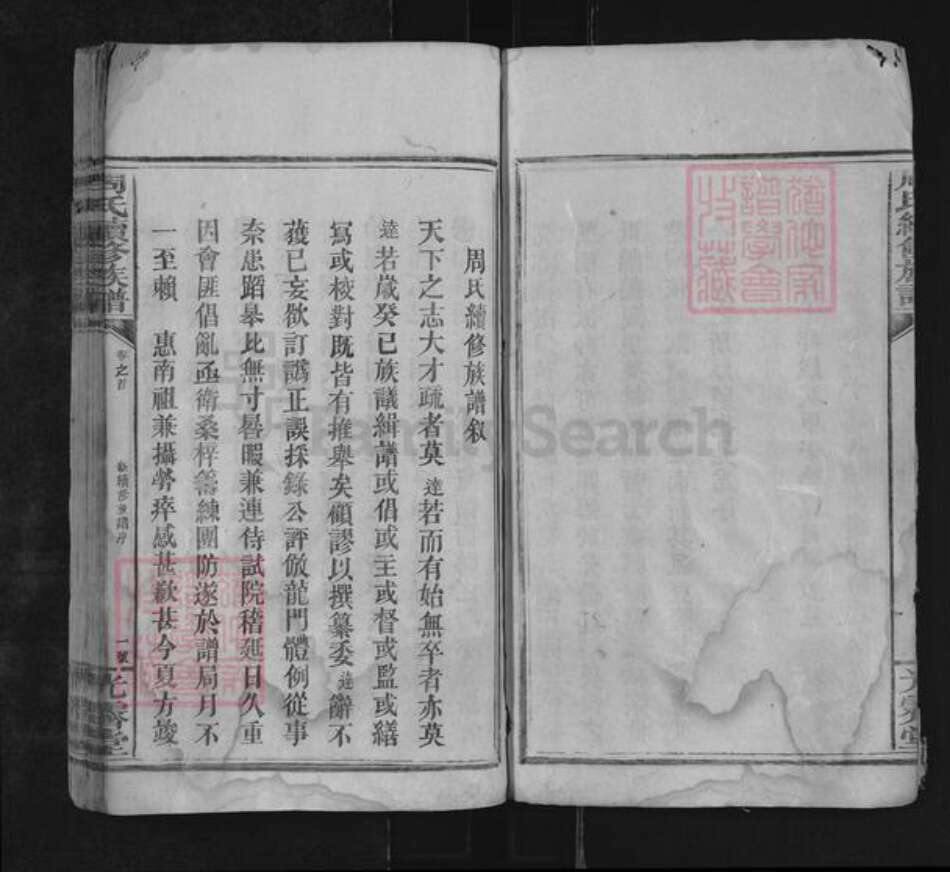 周氏續修族譜
光霽堂
猶他家譜學會收藏
周氏續修族譜叙
天下之志大才疏者莫達若而有始無卒者亦莫
達若歲癸巳族議緝譜或倡或主或督或監或繕
寫或校對既皆有推舉矣顧謬以撰纂委達辭不
獲已妄欲訂譌正誤採錄公評倣龍門體例從事
柰患蹈皋比無寸晷暇兼連侍試院稽延日久重
因會匪倡亂亟衛桑梓籌練團防遂於譜局月不
一至賴 惠南祖兼攝勞瘁感甚歉甚今夏方竣
周氏續修族譜
卷之首
一號
光霽堂
FamilySearch